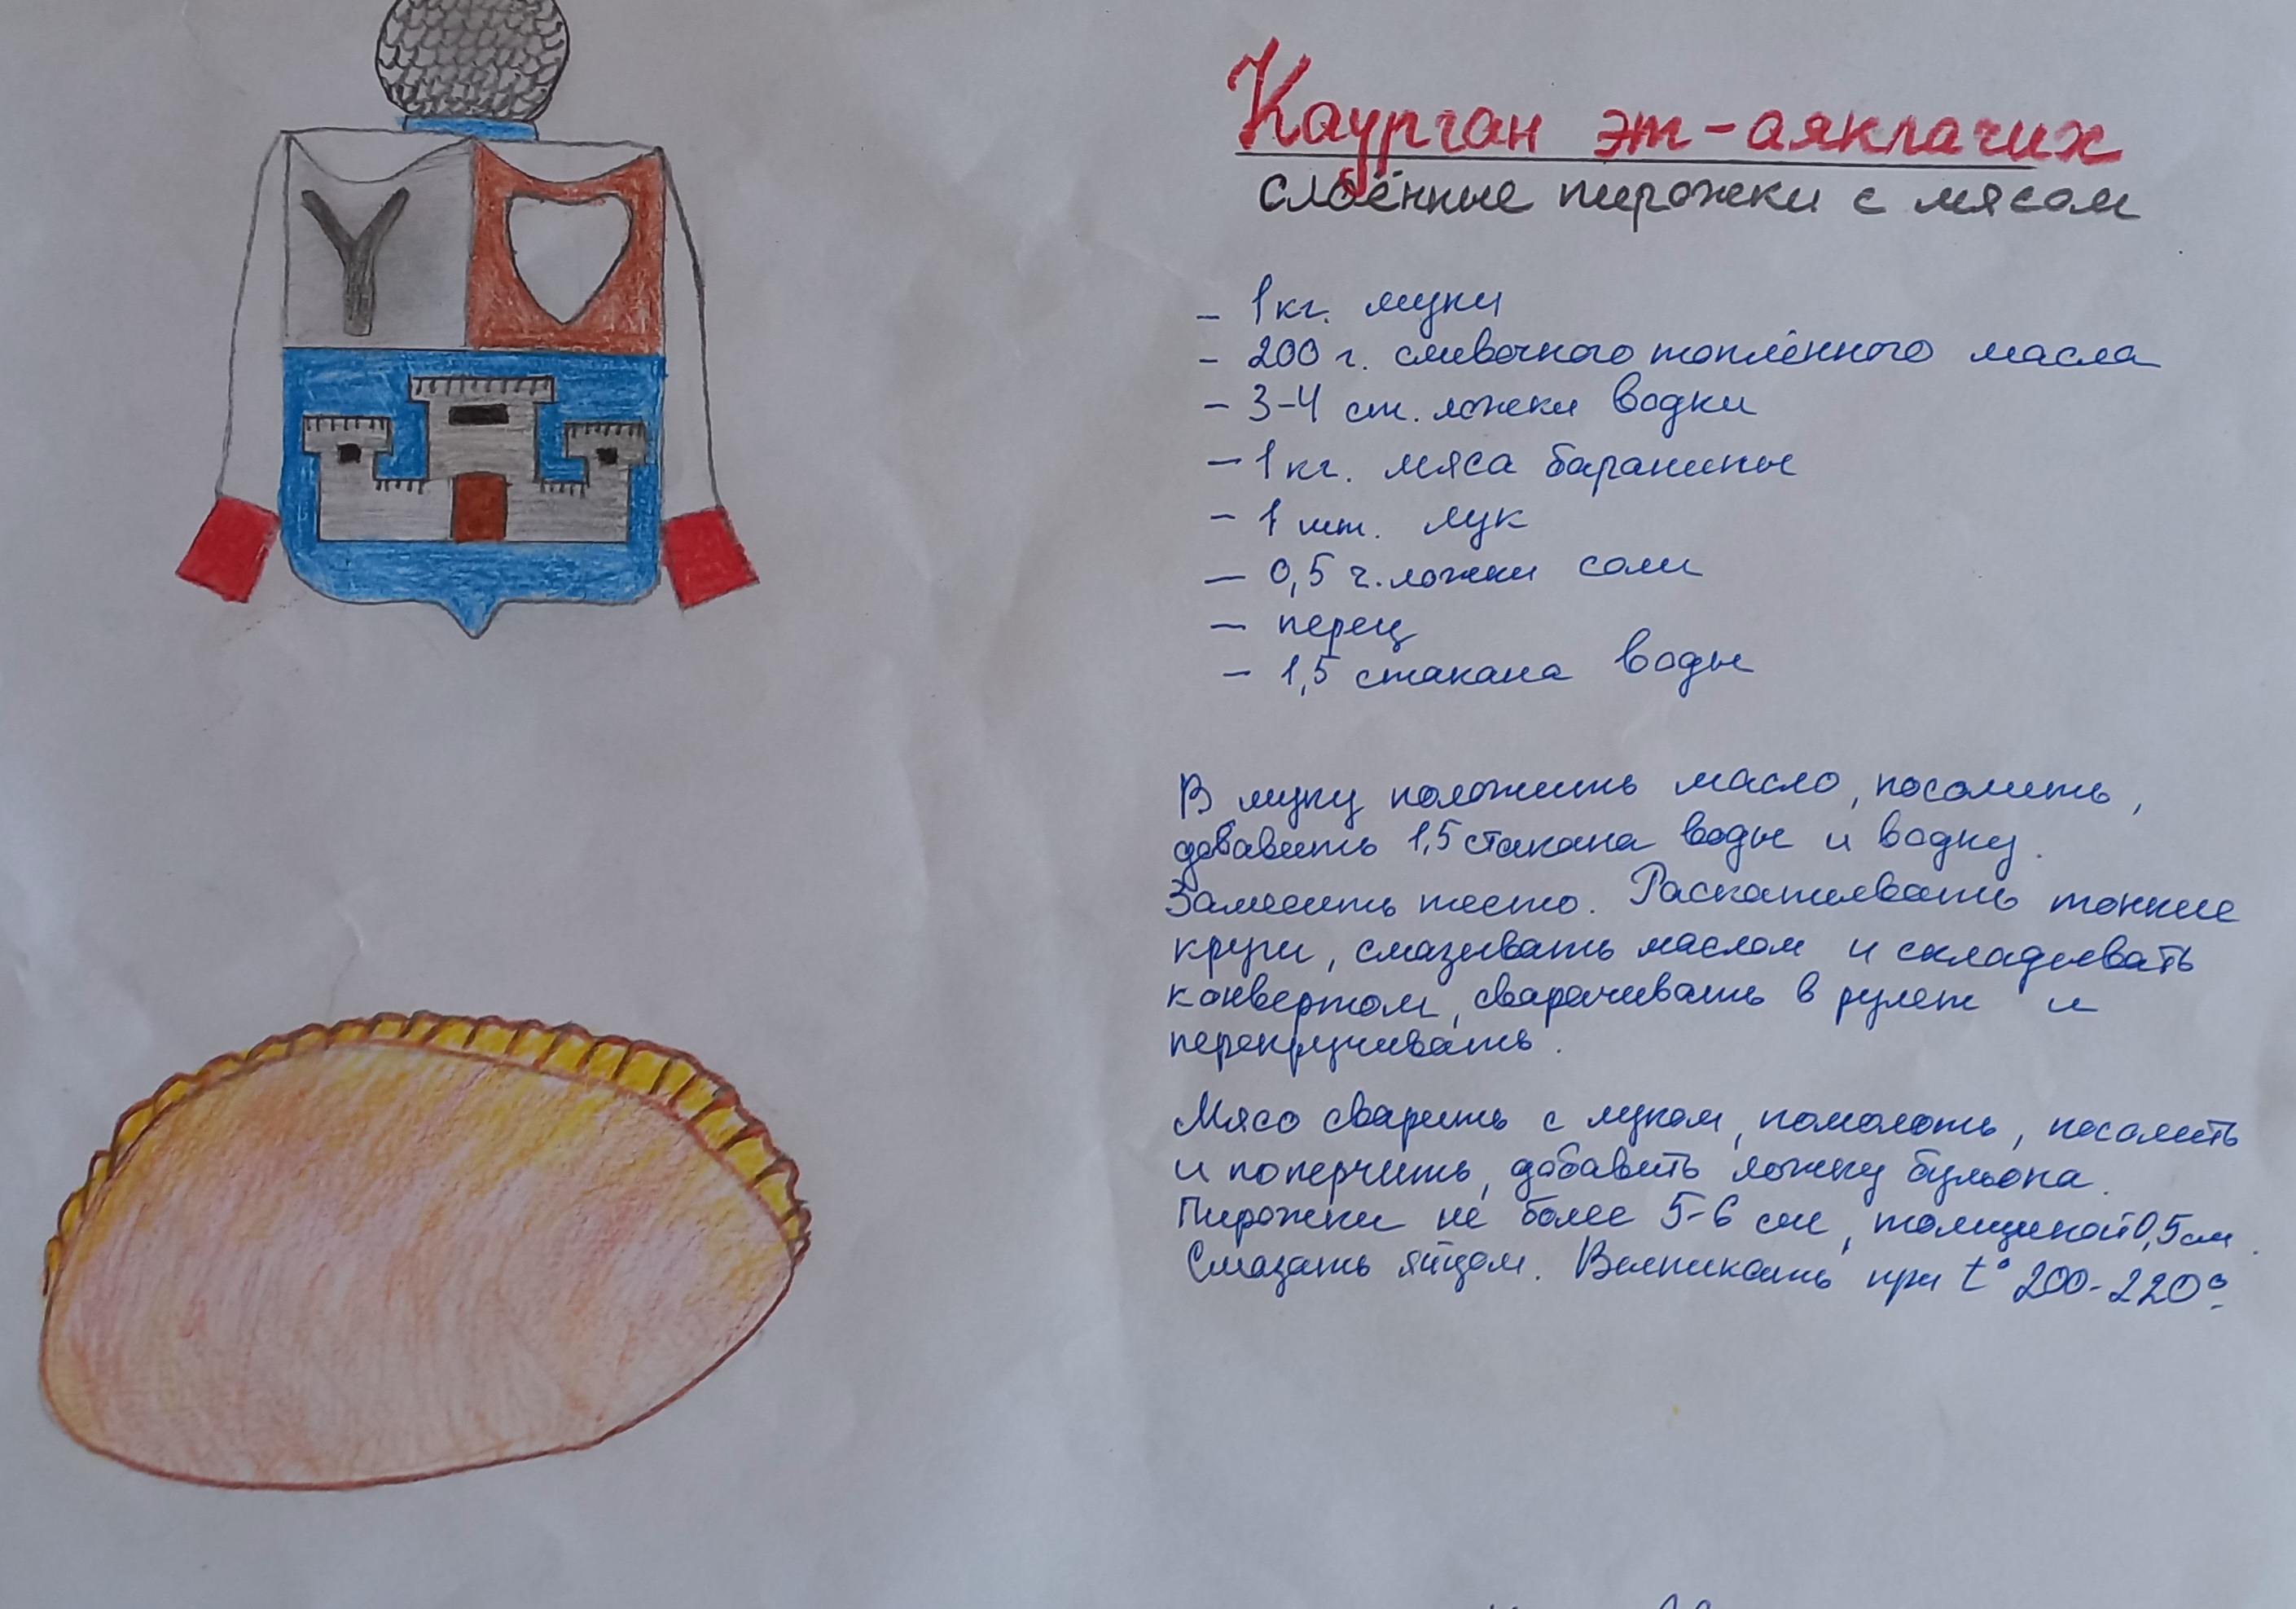 Каурган эт-аяклачих
слоённые пирожки с мясом
- 1 кг. муки
- 200 г. сливочного топлённого масла
- 3-4 ст. ложки водки
- 1 кг. мяса баранины
- 1 шт. лук
- 0,5 ч. ложки соли
- перец
- 1,5 стакана воды
В муку положить масло, посолить,
добавить 1,5 стакана воды и водку.
Замесить тесто. Раскатывать тонкие
круги, смазывать маслом и складывать
конвертом, сварачивать в рулет и
перекручивать.
Мясо сварить с луком, помолоть, посолить
и поперчить, добавить ложку бульона.
Пирожки не более 5-6 см, толщиной 0,5 см.
Смазать яйцом. Выпикать при t° 200-220°